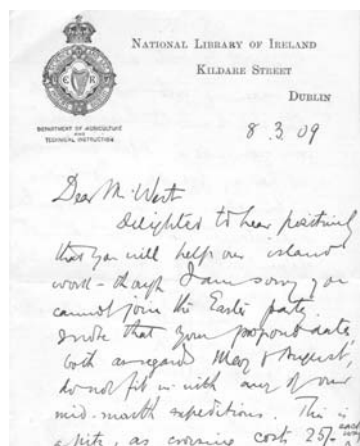 NATIONAL LIBRARY OF IRELAND
KILDARE STREET
DUBLIN
DEPARTMENT OF AGRICULTURE
AND
TECHNICAL INSTRUCTION
8.3.09
Dear Mr. West
Delighted to hear positively
that you will help our island
work - though I am sorry you
cannot join the Easter party.
I note that your proposed dates,
both as regards May & August,
do not fit in with any of our
mid-month expeditions. This is
a pity, as cruising cost 25/- each
way